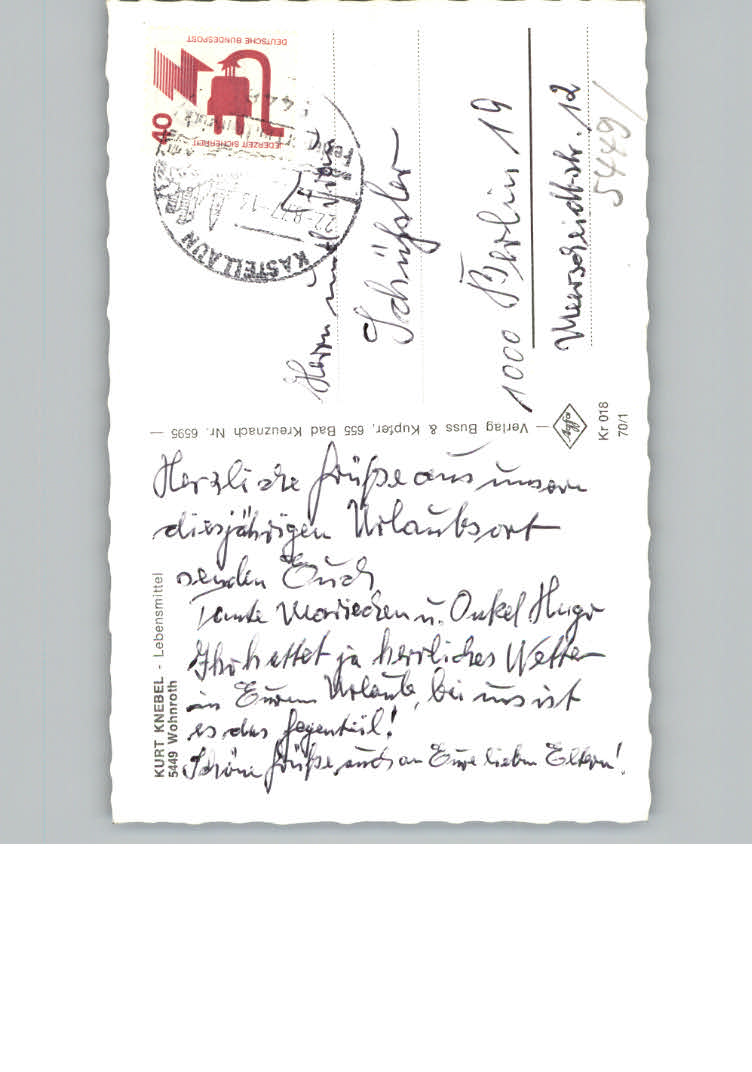 KURT KNEBEL - Lebensmittel
5449 Wohnroth
Herzliche Grüße aus unserm
diesjährigen Urlaubsort
senden Euch
Tante Mariechen u. Onkel Hugo
Ihr hattet ja herrliches Wetter
in Eurem Urlaub, bei uns ist
es das Gegenteil!
Schöne Grüße auch an Eure lieben Eltern!
— Verlag Buss & Kupfer, 655 Bad Kreuznach Nr. 6595 —
Agfa
Kr 018
70/1
DEUTSCHE BUNDESPOST
JEDERZEIT SICHERHEIT
40
KASTELLAUN
Herrn und Frau
Schüßler
1000 Berlin 19
Meerscheidtstr. 12
5449/